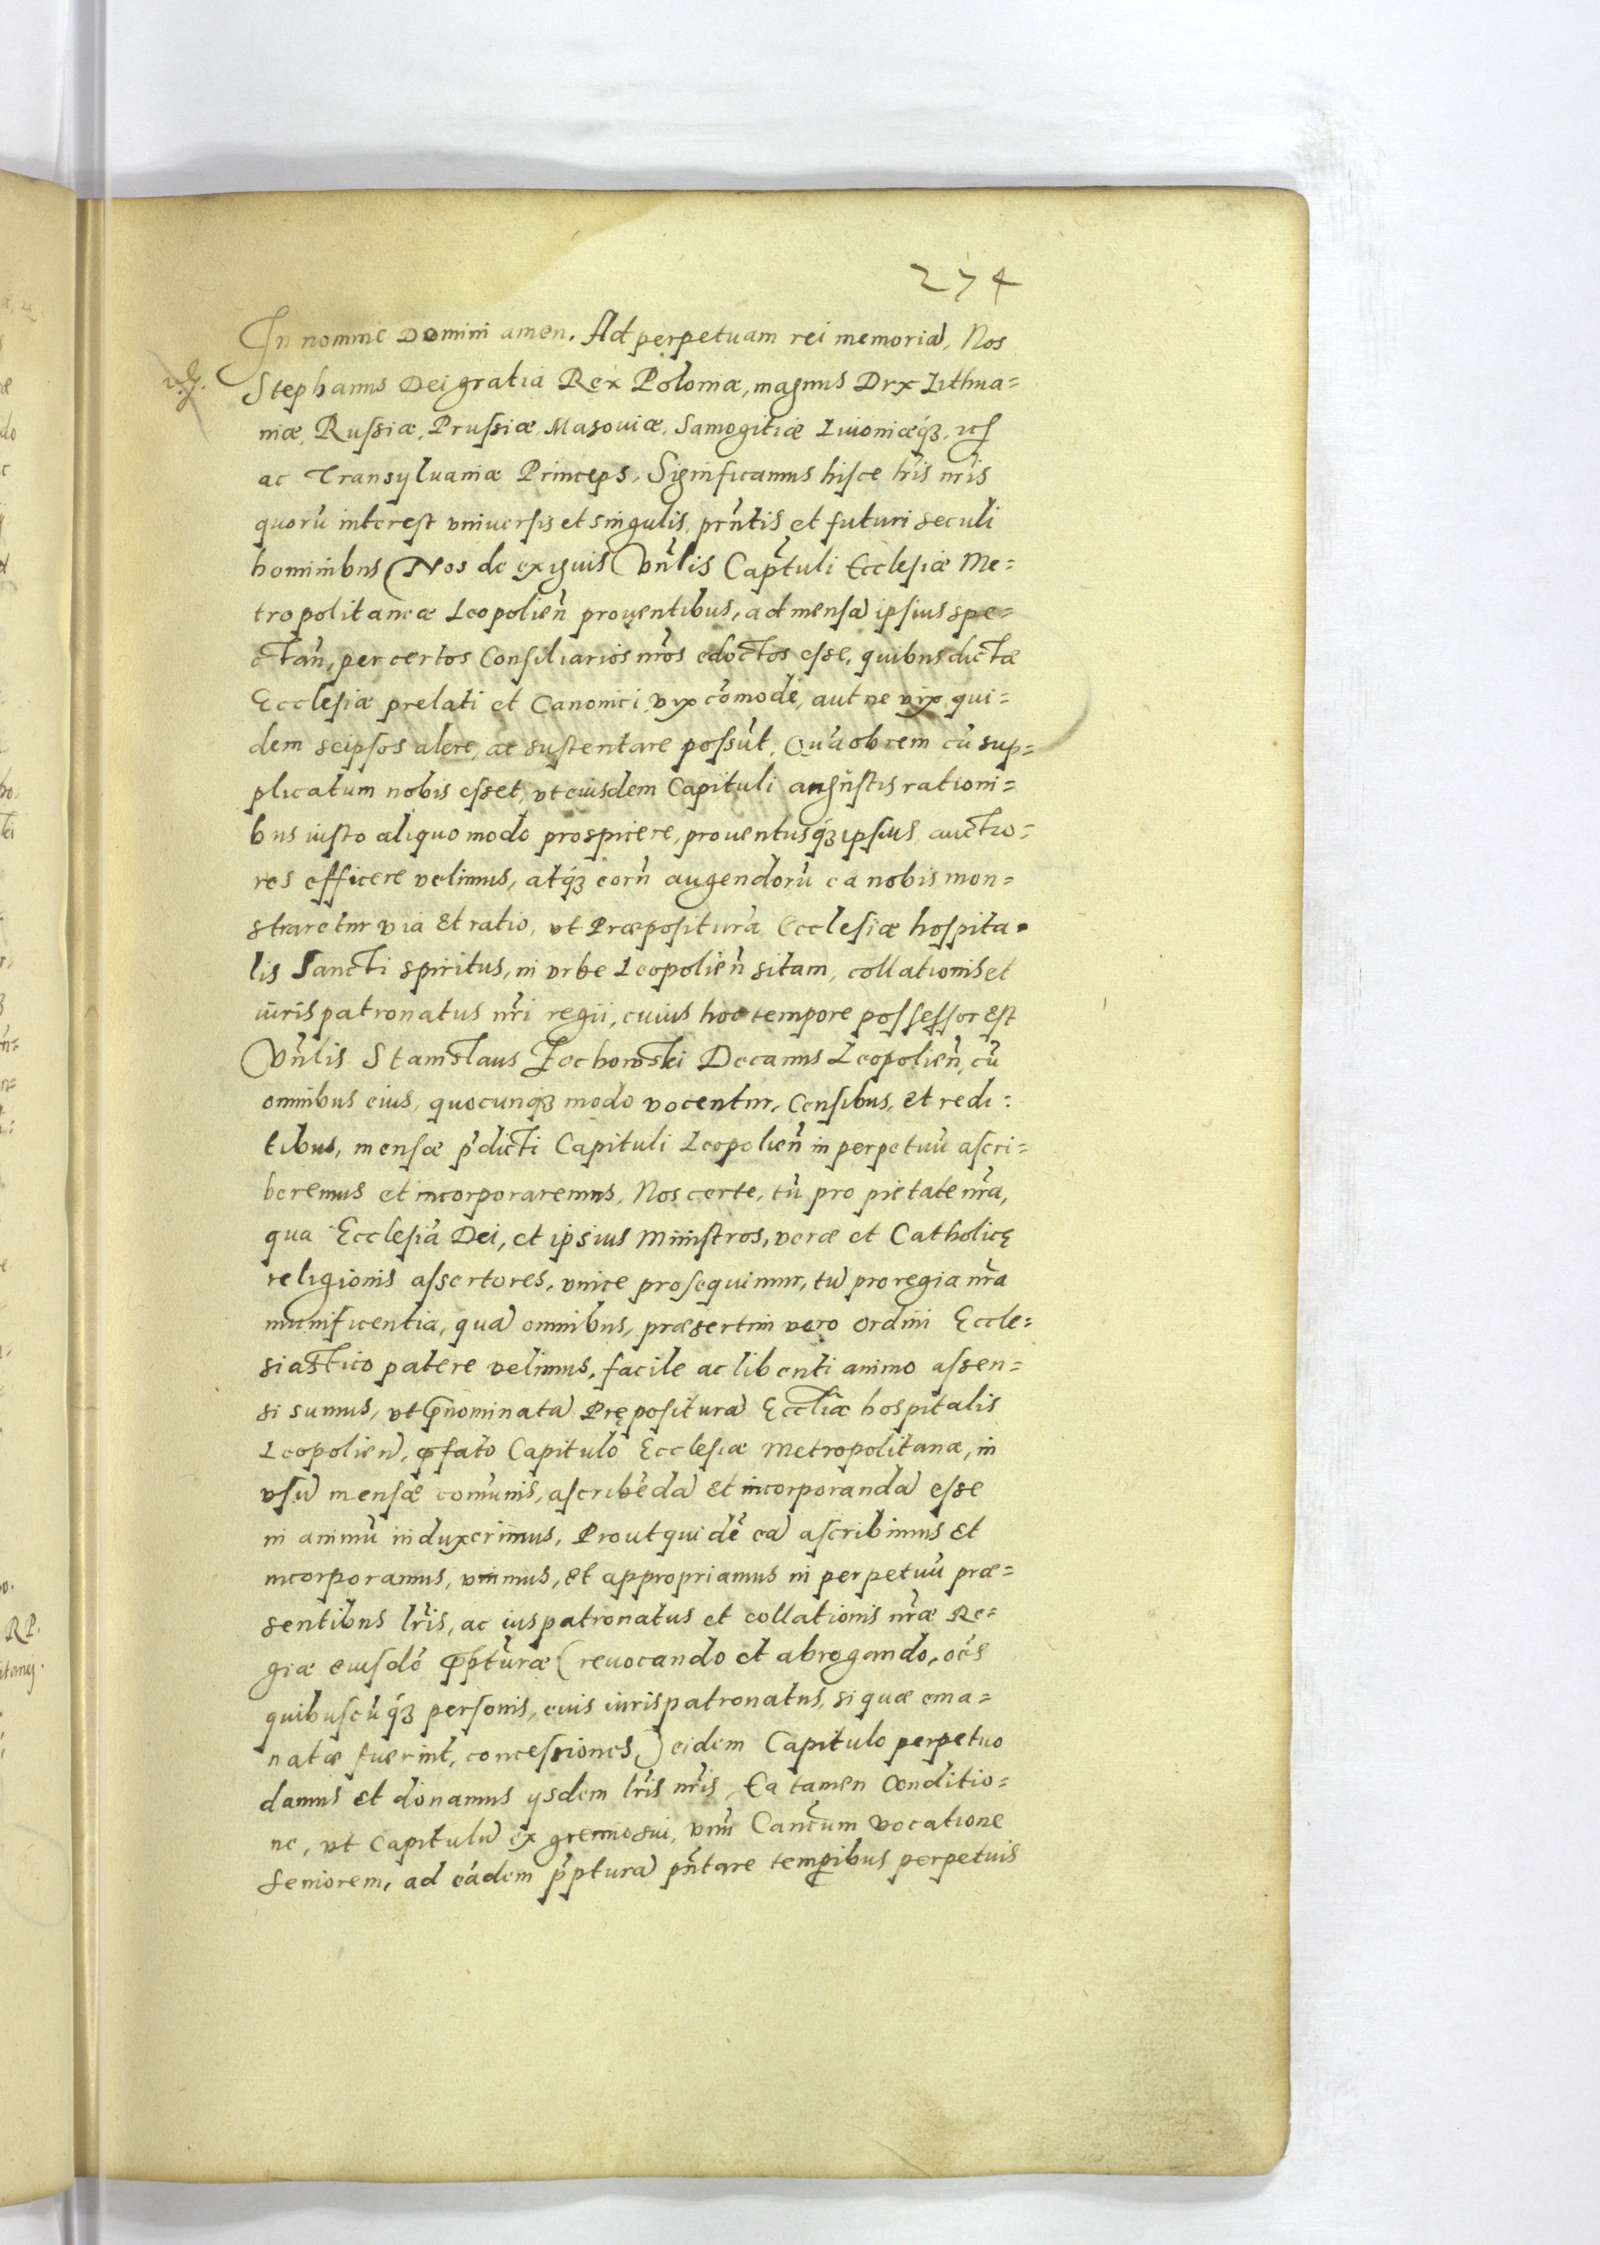 274
In nomine Domini amen. Ad perpetuam rei memoriā, Nos
Stephanus Dei gratia Rex Poloniæ, magnus Dux Lithua=
niæ, Russiæ, Prussiæ, Masouiæ, Samogitiæ Liuoniæq́ꝫ, etc̄
ac Transyluaniæ Princeps. Significamus hisce lr̄is nr̄is
quorū interest vniuersis et singulis, prn̄tis et futuri seculi
hominibus (Nos de exiguis Vn̄lis Cap̄tuli Ecclesiæ Me=
tropolitanæ Leopolien̄ prouentibus, ad mensā ipsius spe=
ctan̄, per certos Consiliarios nr̄os edoctos esse, quibus dictæ
Ecclesiæ prelati et Canonici vix cōmode, aut ne vix qui=
dem seipsos alere, ac sustentare possūt. Quāobrem cū sup=
plicatum nobis esset, vt eiusdem Capituli angustis rationi=
bus iusto aliquo modo prospicere, prouentusq́ꝫ ipsius auctio=
res efficere velimus, atq́ꝫ eorū augendorū ea nobis mon=
straretur via et ratio, vt Præposituram Ecclesiæ hospita=
lis Sancti spiritus, in vrbe Leopolien̄ sitam, collationis et
iuris patronatus nr̄i regii, cuius hoc tempore possessor est
Vn̄lis Stanislaus Zochowski Decanus Leopolien̄, cū
omnibus eius, quocunq́ꝫ modo vocentur, Censibus, et redi=
tibus, mensæ p̄dicti Capituli Leopolien̄ in perpetuū ascri=
beremus et incorporaremus. Nos certe, tū pro pietate nr̄a,
qua Ecclesiā Dei, et ipsius Ministros, veræ et Catholicę
religionis assertores, vnice prosequimur, tū pro regia nr̄a
munificentia, quā omnibus, præsertim vero ordini Eccle=
siastico patere velimus, facile ac libenti animo assen=
si sumus, vt p̄nominatā Prępositurā Eccl̄iæ hospitalis
Leopolien̄, p̄fato Capitulo Ecclesiæ Metropolitanæ, in
vsū mensæ com̄unis, ascribēdā et incorporandā esse
in animū induxerimus, Prout quidē eā ascribimus et
incorporamus, vnimus, et appropriamus in perpetuū præ=
sentibus lr̄is, ac ius patronatus et collationis nr̄æ Re=
giæ eiusdē p̄ptūræ (reuocando et abrogando, oēs
quibuscūq́ꝫ personis, eius iuris patronatus, si quæ ema=
natæ fuerint, concessiones,) eidem Capitulo perpetuo
damus et donamus ijsdem lr̄is nr̄is, Ea tamen Conditio=
ne, vt Capitulū ex gremio sui, vnū Can̄cum vocatione
seniorem, ad eādem p̄pturā pn̄tare temporibus perpetuis